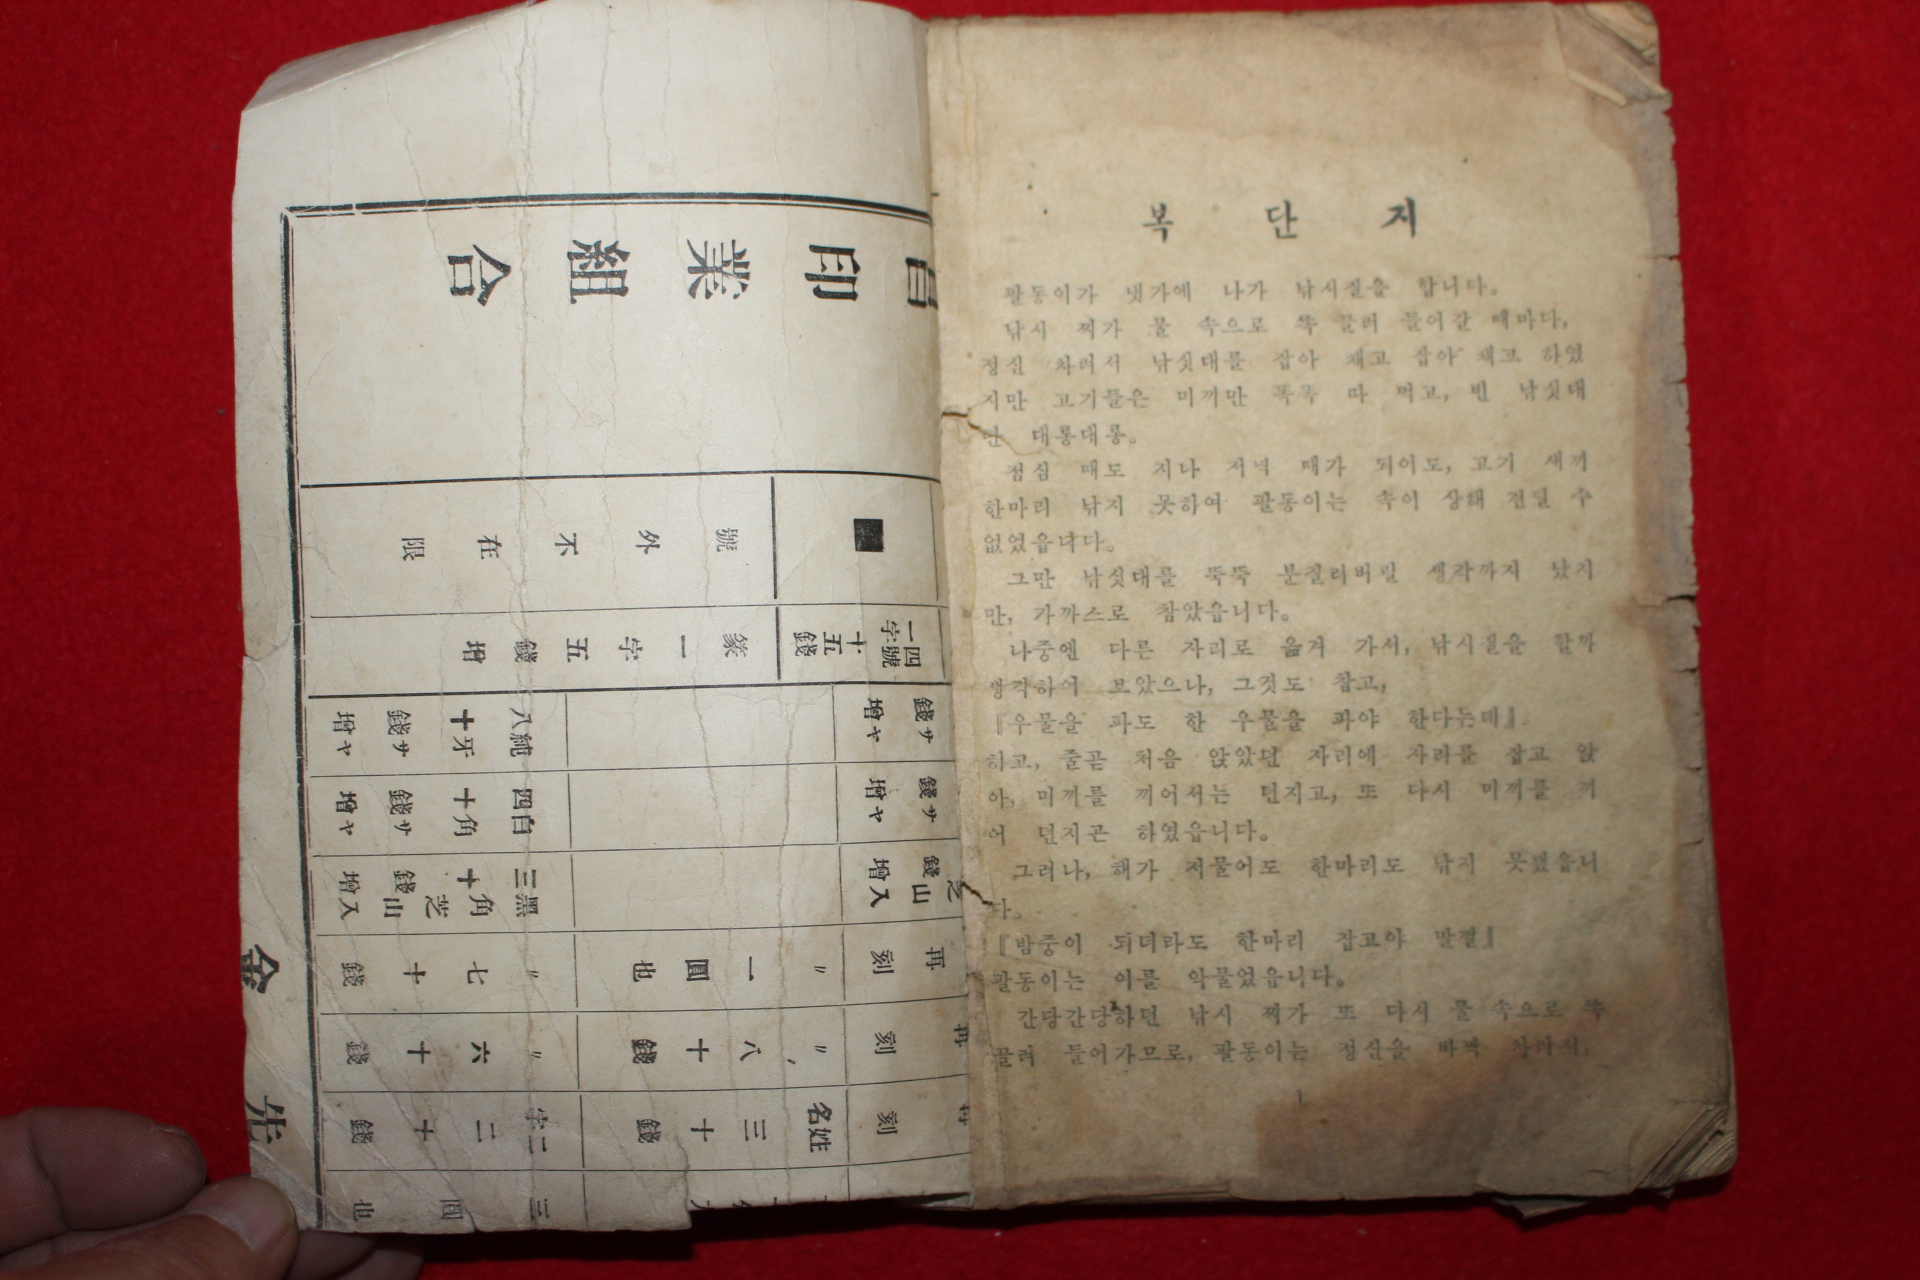 昌印業組合
號外不在限
四號一字十五錢
篆一字五錢增
錢サ增ヤ
純牙八十錢サ增ヤ
錢サ增ヤ
白角四十錢サ增ヤ
錢山增入
黑角三十錢芝山增入
再刻
〃一圓也
〃七十錢
再刻
〃八十錢
〃六十錢
刻
姓名三十錢
二字二十錢
三圓也
金
先
복단지
팔동이가 냇가에 나가 낚시질을 합니다。
낚시 찌가 물 속으로 뚝 끌려 들어갈 때마다,
정신 차려서 낚싯대를 잡아 채고 잡아 채고 하였
지만 고기들은 미끼만 똑똑 따 먹고, 빈 낚싯대
만 대롱대롱。
점심 때도 지나 저녁 때가 되어도, 고기 새끼
한마리 낚지 못하여 팔동이는 속이 상해 견딜 수
없었읍니다。
그만 낚싯대를 뚝뚝 분질러버릴 생각까지 났지
만, 가까스로 참았읍니다。
나중엔 다른 자리로 옮겨 가서, 낚시질을 할까
생각하여 보았으나, 그것도 참고,
『우물을 파도 한 우물을 파야 한다는데』
하고, 줄곧 처음 앉았던 자리에 자리를 잡고 앉
아, 미끼를 끼어서는 던지고, 또 다시 미끼를 끼
어 던지곤 하였읍니다。
그러나, 해가 저물어도 한마리도 낚지 못했읍니
다。
『밤중이 되더라도 한마리 잡고야 말껄』
팔동이는 이를 악물었읍니다。
간당간당하던 낚시 찌가 또 다시 물 속으로 뚝
끌려 들어가므로, 팔동이는 정신을 바짝 차려서,
1